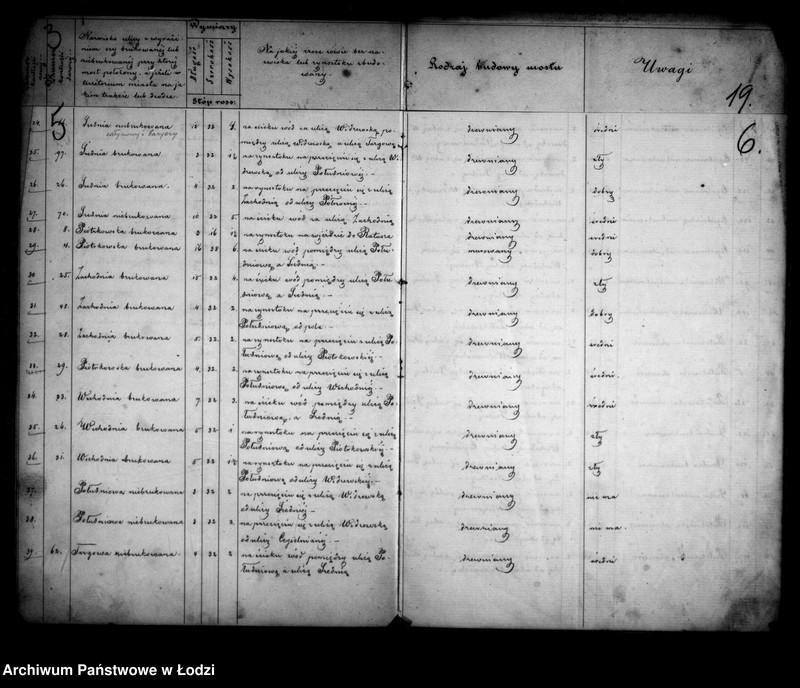 Wymiary
Nazwisko ulicy z wyraże-
niem czy brukowanej lub
niebrukowanej przy której
most położony, a jeżeli w
teritorium miasta na ja-
kim trakcie lub drodze.
Długość
Szerokość
Wysokość
Stóp ross:
Na jakiej rzece
wiska lub rynsztoku zbudo-
wany.
Rodzaj budowy mostu
Uwagi
19.
6.
24. Średnia niebrukowana 22 4. na ścieku wód za ulicą Widzewską po- drewniany średni
między ulicą Widzewską a ulicą Targową
25. 97. Średnia brukowana 3 22 na rynsztoku na przecięciu się z ulicą Wi- drewniany zły
dzewską od ulicy Południowej
26. 26. Średnia brukowana. 4 22 2. na rynsztoku na przecięciu się z ulicą drewniany dobry
Zachodnią od ulicy Północnej
27. 70. Średnia niebrukowana 10 22 5. na ścieku wód za ulicą Zachodnią drewniany średni
28. 8. Piotrkowska brukowana 3 16 na rynsztoku na wyjeździe do Ratusza drewniany średni
29. 4. Piotrkowska brukowana 16 28 6. na ścieku wód pomiędzy ulicą Połu- murowany dobry
dniową a Średnią
30. 25. Zachodnia brukowana 15 22 4. na ścieku wód pomiędzy ulicą Połu- drewniany zły
dniową a Średnią
31. Zachodnia brukowana 4 22 2. na rynsztoku na przecięciu się z ulicą drewniany dobry
Południową od pola
32. 28. Zachodnia brukowana 5. 22 2. na rynsztoku na przecięciu się z ulicą Po- drewniany średni
łudniową od ulicy Piotrkowskiej
33. 29. Piotrkowska brukowana 4. 22 2. na rynsztoku na przecięciu się z ulicą drewniany średni.
Południową od ulicy Wschodniej
34. 33. Wschodnia brukowana 7 22 3. na ścieku wód pomiędzy ulicą Po- drewniany średni
łudniową, a Średnią
35. 26. Wschodnia brukowana 5 22 1 na rynsztoku na przecięciu się z ulicą drewniany zły
Południową od ulicy Piotrkowskiej
36. 31. Wschodnia brukowana 5 22 na rynsztoku na przecięciu się z ulicą drewniany zły
Południową od ulicy Widzewskiej
37. Południowa niebrukowana 3 22 2 na przecięciu się z ulicą Widzewską drewniany nie ma
od ulicy Średniej
38. Południowa niebrukowana 3 22 2. na przecięciu się z ulicą Widzewską drewniany nie ma.
od ulicy Cegielnianej
39. 62. Targowa niebrukowana 4 22 2 na ścieku wód pomiędzy ulicą Po- drewniany średni
łudniową a ulicą Średnią
Archiwum Państwowe w Łodzi